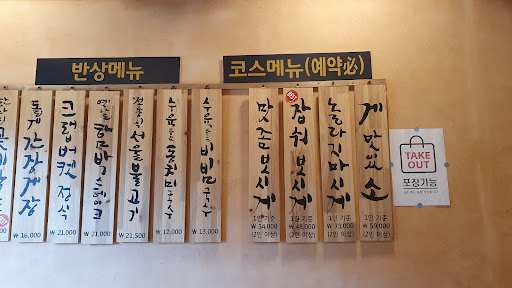 반상메뉴
돌게
간장게장
₩ 16,000
크랩버켓 정식
₩ 21,000
옛날
함박스테이크
₩ 21,000
서울불고기
₩ 21,500
수유
동치미국수
₩ 12,000
수유
비빔국수
₩ 13,000
코스메뉴(예약必)
맛 좀 보시게
1인 기준
₩ 34,000
(2인 이상)
잡숴 보시게
1인 기준
₩ 48,000
(2인 이상)
놀라지 마시게
1인 기준
₩ 73,000
(2인 이상)
게 맛있소
1인 기준
₩ 59,000
(2인 이상)
TAKE
OUT
포장가능